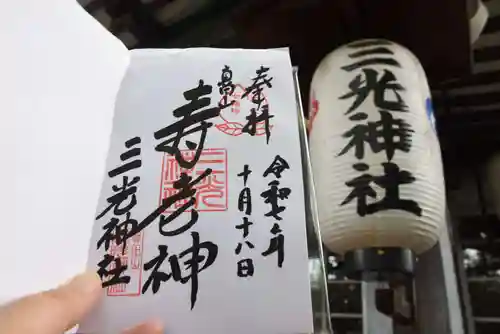 奉拝
令和七年
十月十八日
寿老神
三光神社
三光神社